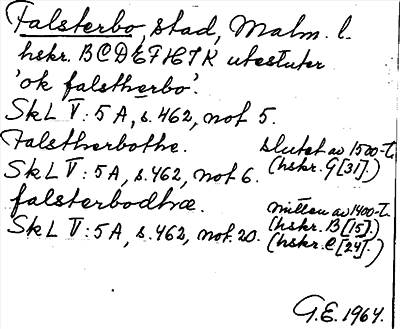 Falsterbo, stad, Malm. l.
hskr. BCDEFHIK utesluter
'ok falstherbo'.
SkL V:5A, s.462, not 5.
Falstherbothe. slutet av 1500-t.
SkL V:5A, s.462, not 6. (hskr. G[31].)
falsterbodhræ. mitten av 1400-t.
SkL V:5A, s.462, not 20. (hskr. B[15].)
(hskr. C[24].)
G.E. 1964.